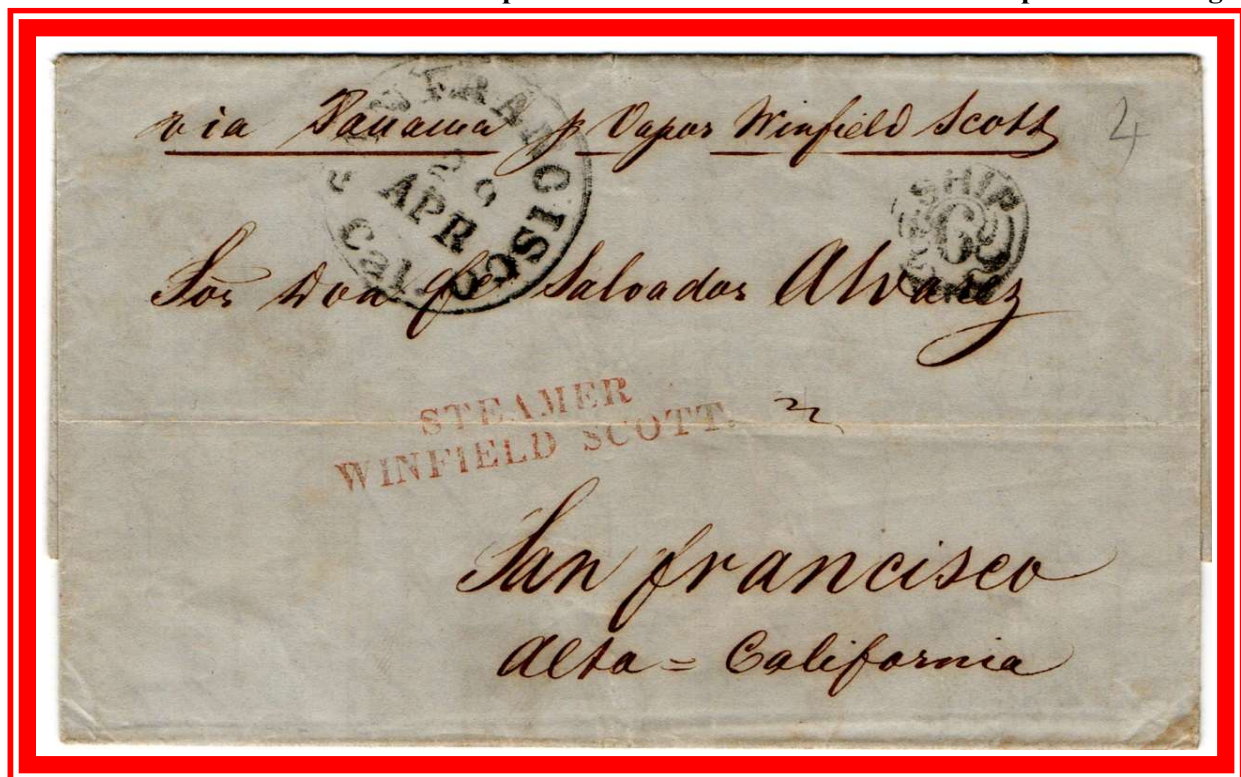 via Panama p Vapor Winfield Scott
4
SAN FRANCISCO
20
APR
Cal.
SHIP
6
Sor Don Je Salvador Alvarez
STEAMER
WINFIELD SCOTT.
San francisco
Alta = California